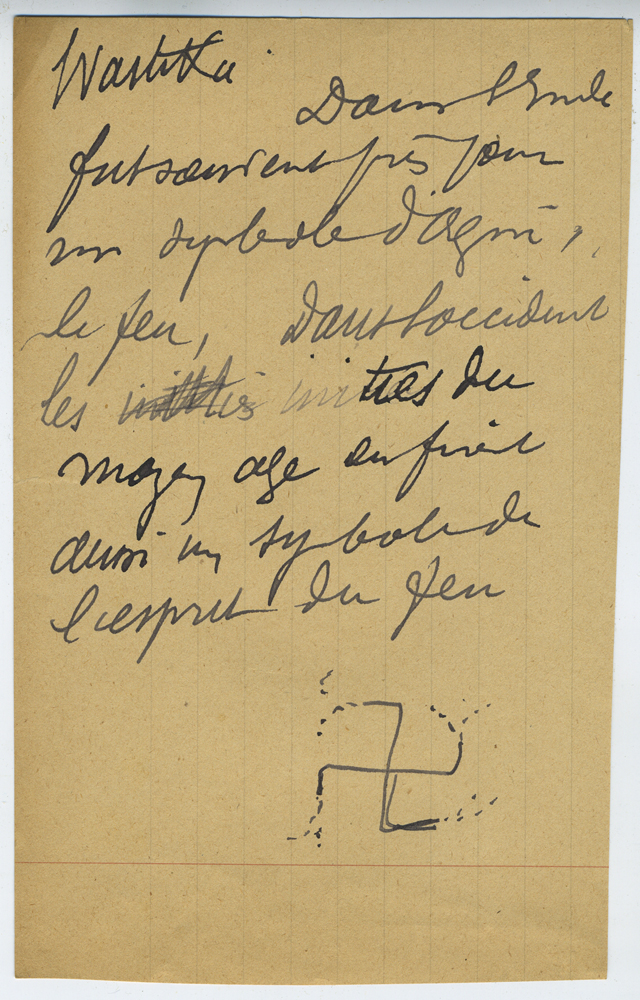 Wastika
Dans l'Inde
fut souvent pris pour
un symbole d'Agni,
le feu, Dans l'occident
les initiés initiés du
moyen age en firent
aussi un symbole de
l'esprit du feu